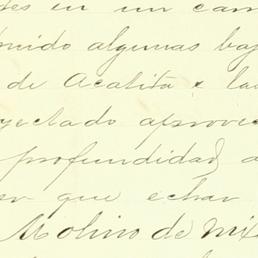 des en un cam
nido algunas baj
de Acatita e la
yectado aprovec
profundidad, a
er que echar
Molino de Mix